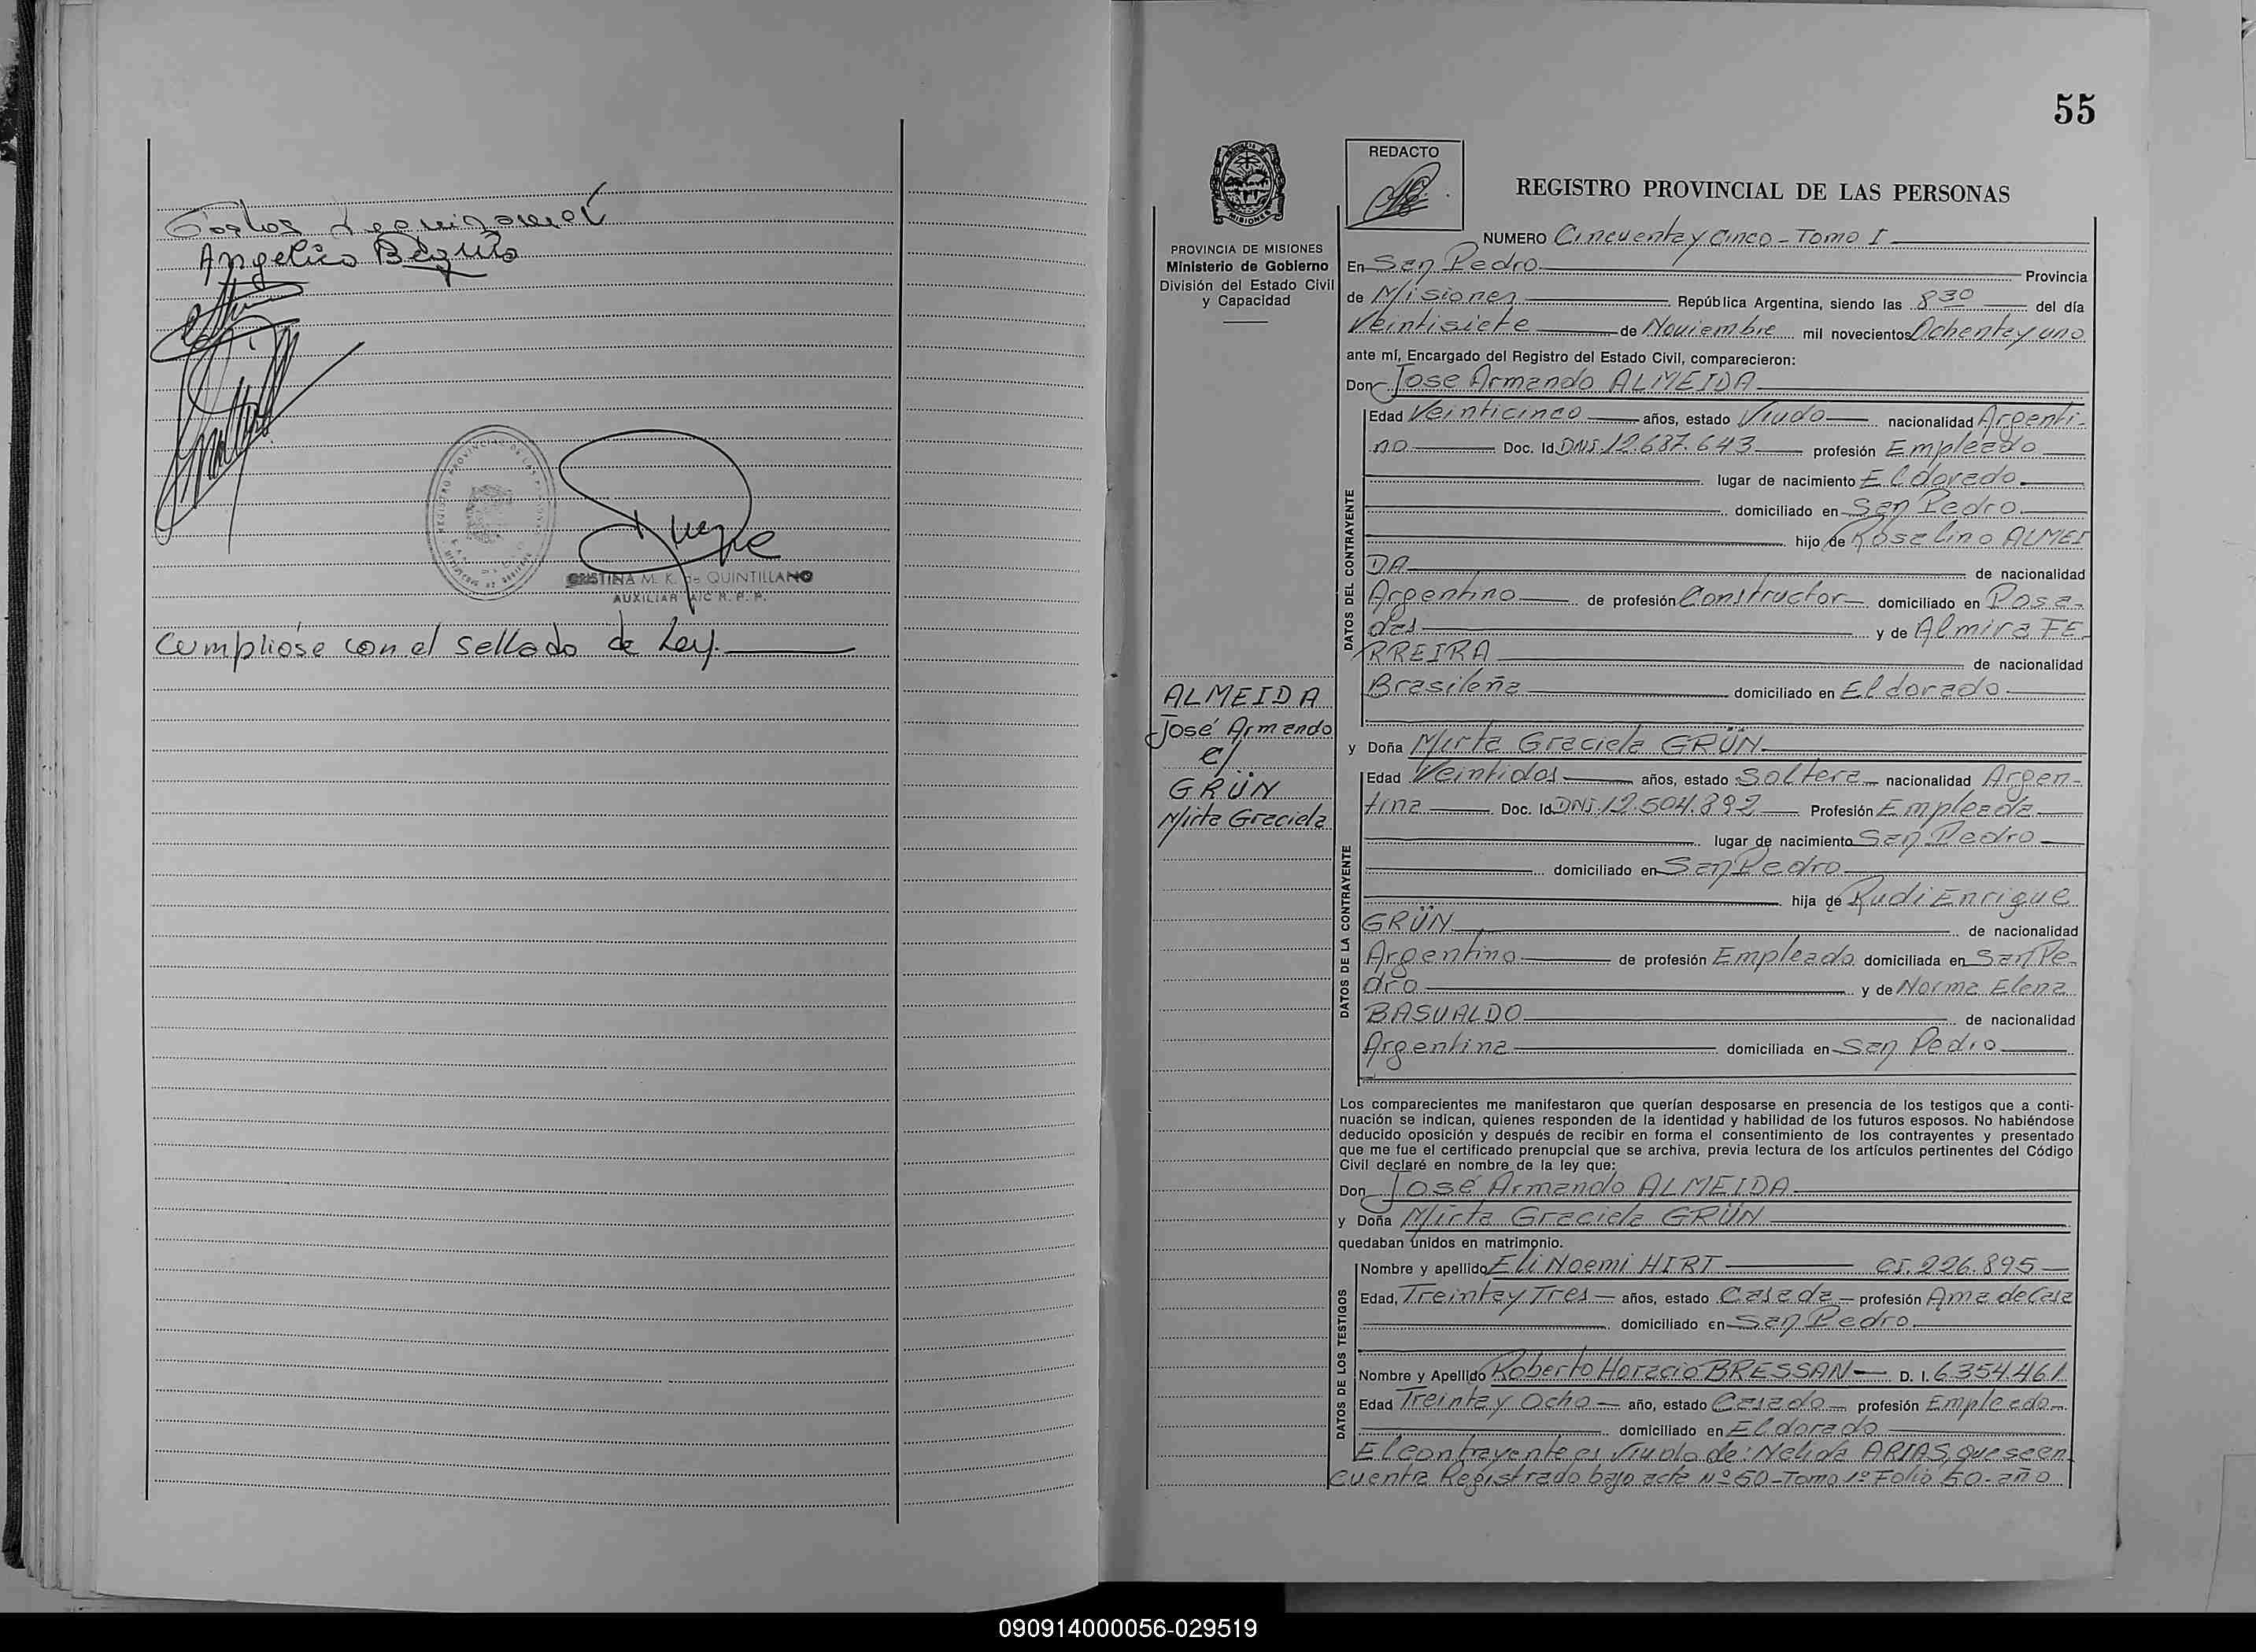 Angelica
CRISTINA M. K. de QUINTILLANO
AUXILIAR
Cumpliose con el sellado de Ley.
55
REDACTO
MISIONES
REGISTRO PROVINCIAL DE LAS PERSONAS
PROVINCIA DE MISIONES
Ministerio de Gobierno
División del Estado Civil
y Capacidad
ALMEIDA
José Armando
c/
GRÜN
Mirta Graciela
NUMERO Cincuenta y Cinco - Tomo I
En San Pedro Provincia
de Misiones República Argentina, siendo las 830 del día
Veintisiete de Noviembre mil novecientos Ochenta y uno
ante mí, Encargado del Registro del Estado Civil, comparecieron:
Don Jose Armando ALMEIDA
DATOS DEL CONTRAYENTE
Edad Veinticinco años, estado Viudo nacionalidad Argenti-
no Doc. Id DNI. 12.687.643 profesión Empleado
lugar de nacimiento Eldorado
domiciliado en San Pedro
hijo de Rosalino ALMEI
DA de nacionalidad
Argentino de profesión Constructor domiciliado en Posa-
das y de Almira FE-
RREIRA de nacionalidad
Brasileña domiciliado en Eldorado
y Doña Mirta Graciela GRÜN
DATOS DE LA CONTRAYENTE
Edad Veintidos años, estado Soltera nacionalidad Argen-
tina Doc. Id DNI. 12.504.892 Profesión Empleada
lugar de nacimiento San Pedro
domiciliado en San Pedro
hija de Rudi Enrique
GRÜN de nacionalidad
Argentino de profesión Empleado domiciliada en San Pe-
dro y de Norma Elena
BASUALDO de nacionalidad
Argentina domiciliada en San Pedro
Los comparecientes me manifestaron que querían desposarse en presencia de los testigos que a conti-
nuación se indican, quienes responden de la identidad y habilidad de los futuros esposos. No habiéndose
deducido oposición y después de recibir en forma el consentimiento de los contrayentes y presentado
que me fue el certificado prenupcial que se archiva, previa lectura de los artículos pertinentes del Código
Civil declaré en nombre de la ley que:
Don José Armando ALMEIDA
y Doña Mirta Graciela GRÜN
quedaban unidos en matrimonio.
DATOS DE LOS TESTIGOS
Nombre y apellido Eli Noemi HIRT CI. 226.895
Edad, Treinta y Tres años, estado Casada profesión Ama de Casa
domiciliado en San Pedro
Nombre y Apellido Roberto Horacio BRESSAN D. I. 6.354.461
Edad Treinta y Ocho año, estado Casado profesión Empleado
domiciliado en Eldorado
El contrayente es Viudo de: Nelida ARIAS, que se en
cuentra Registrado bajo acta Nº 50 - Tomo 1º Folio 50 - año
090914000056-029519